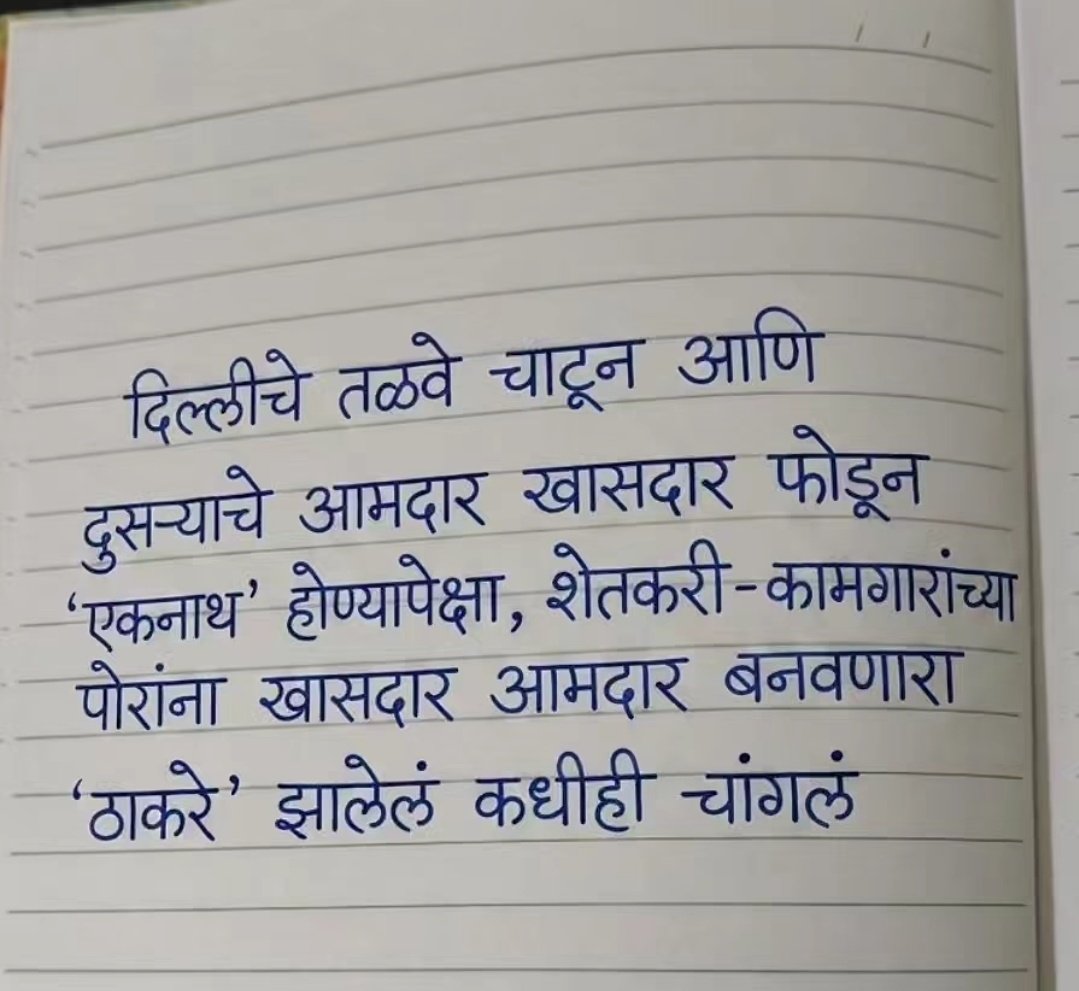 दिल्लीचे तळवे चाटून आणि
दुसऱ्याचे आमदार खासदार फोडून
‘एकनाथ’ होण्यापेक्षा, शेतकरी-कामगारांच्या
पोरांना खासदार आमदार बनवणारा
‘ठाकरे’ झालेलं कधीही चांगलं